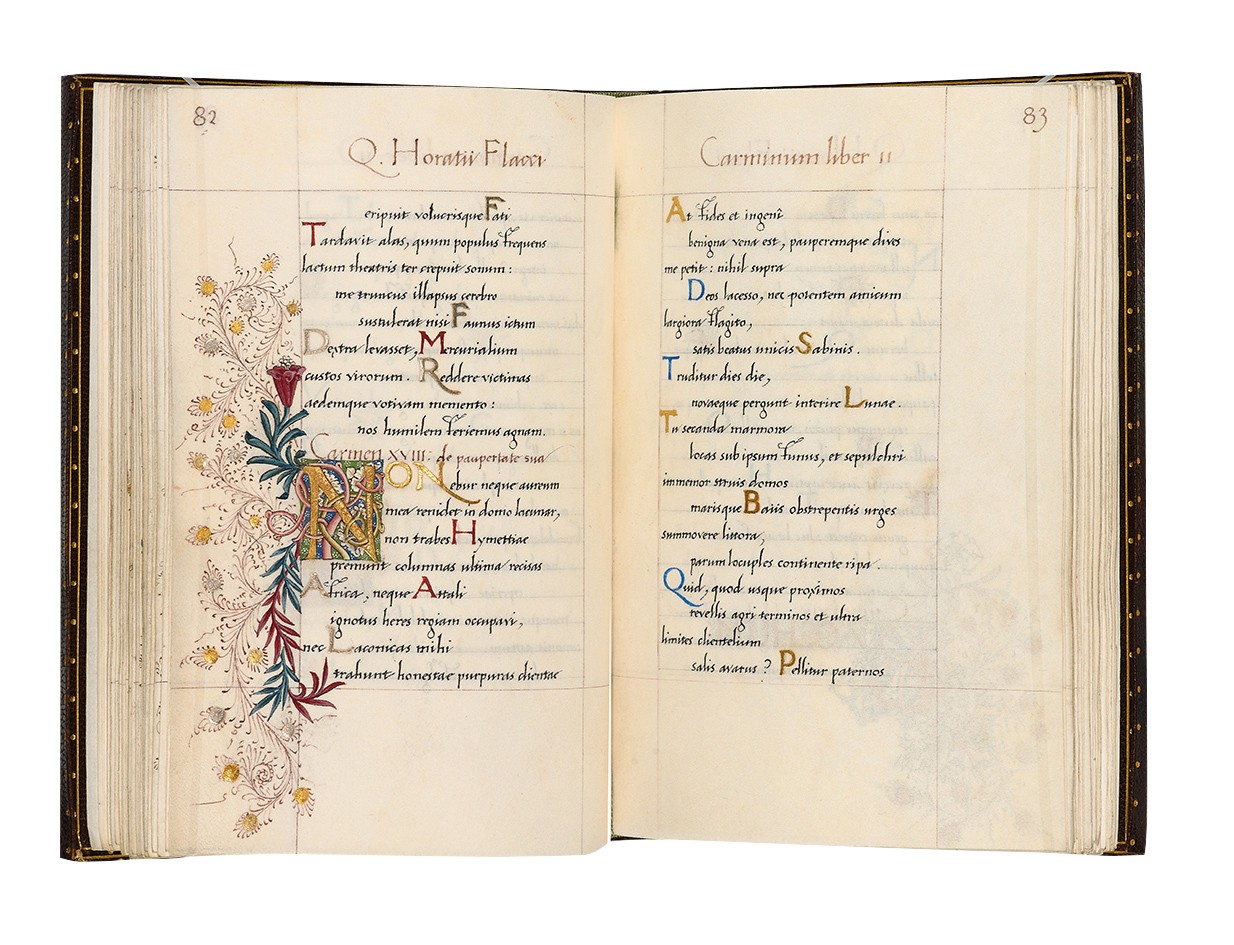 82
Q. Horatii Flacci
eripuit volucrisque Fati
Tardavit alas, quum populus frequens
laetum theatris ter crepuit sonum :
me truncus illapsus cerebro
sustulerat nisi Faunus ictum
Dextra levasset, Mercurialium
custos virorum. Reddere victimas
aedemque votivam memento :
nos humilem feriemus agnam.
Carmen XVIII: de paupertate sua
NON ebur neque aureum
mea renidet in domo lacunar,
non trabes Hymettiae
premunt columnas ultima recisas
Africa, neque Attali
ignotus heres regiam occupavi,
nec Laconicas mihi
trahunt honestae purpuras clientae
83
Carminum liber II
At fides et ingenî
benigna vena est, pauperemque dives
me petit : nihil supra
Deos lacesso, nec potentem amicum
largiora flagito,
satis beatus unicis Sabinis.
Truditur dies die,
novaeque pergunt interire Lunae.
Tu secanda marmora
locas sub ipsum funus, et sepulchri
immemor struis domos
marisque Baiis obstrepentis urges
summovere littora,
parum locuples continente ripa.
Quid, quod usque proximos
revellis agri terminos et ultra
limites clientelium
salis avarus ? Pellitur paternos